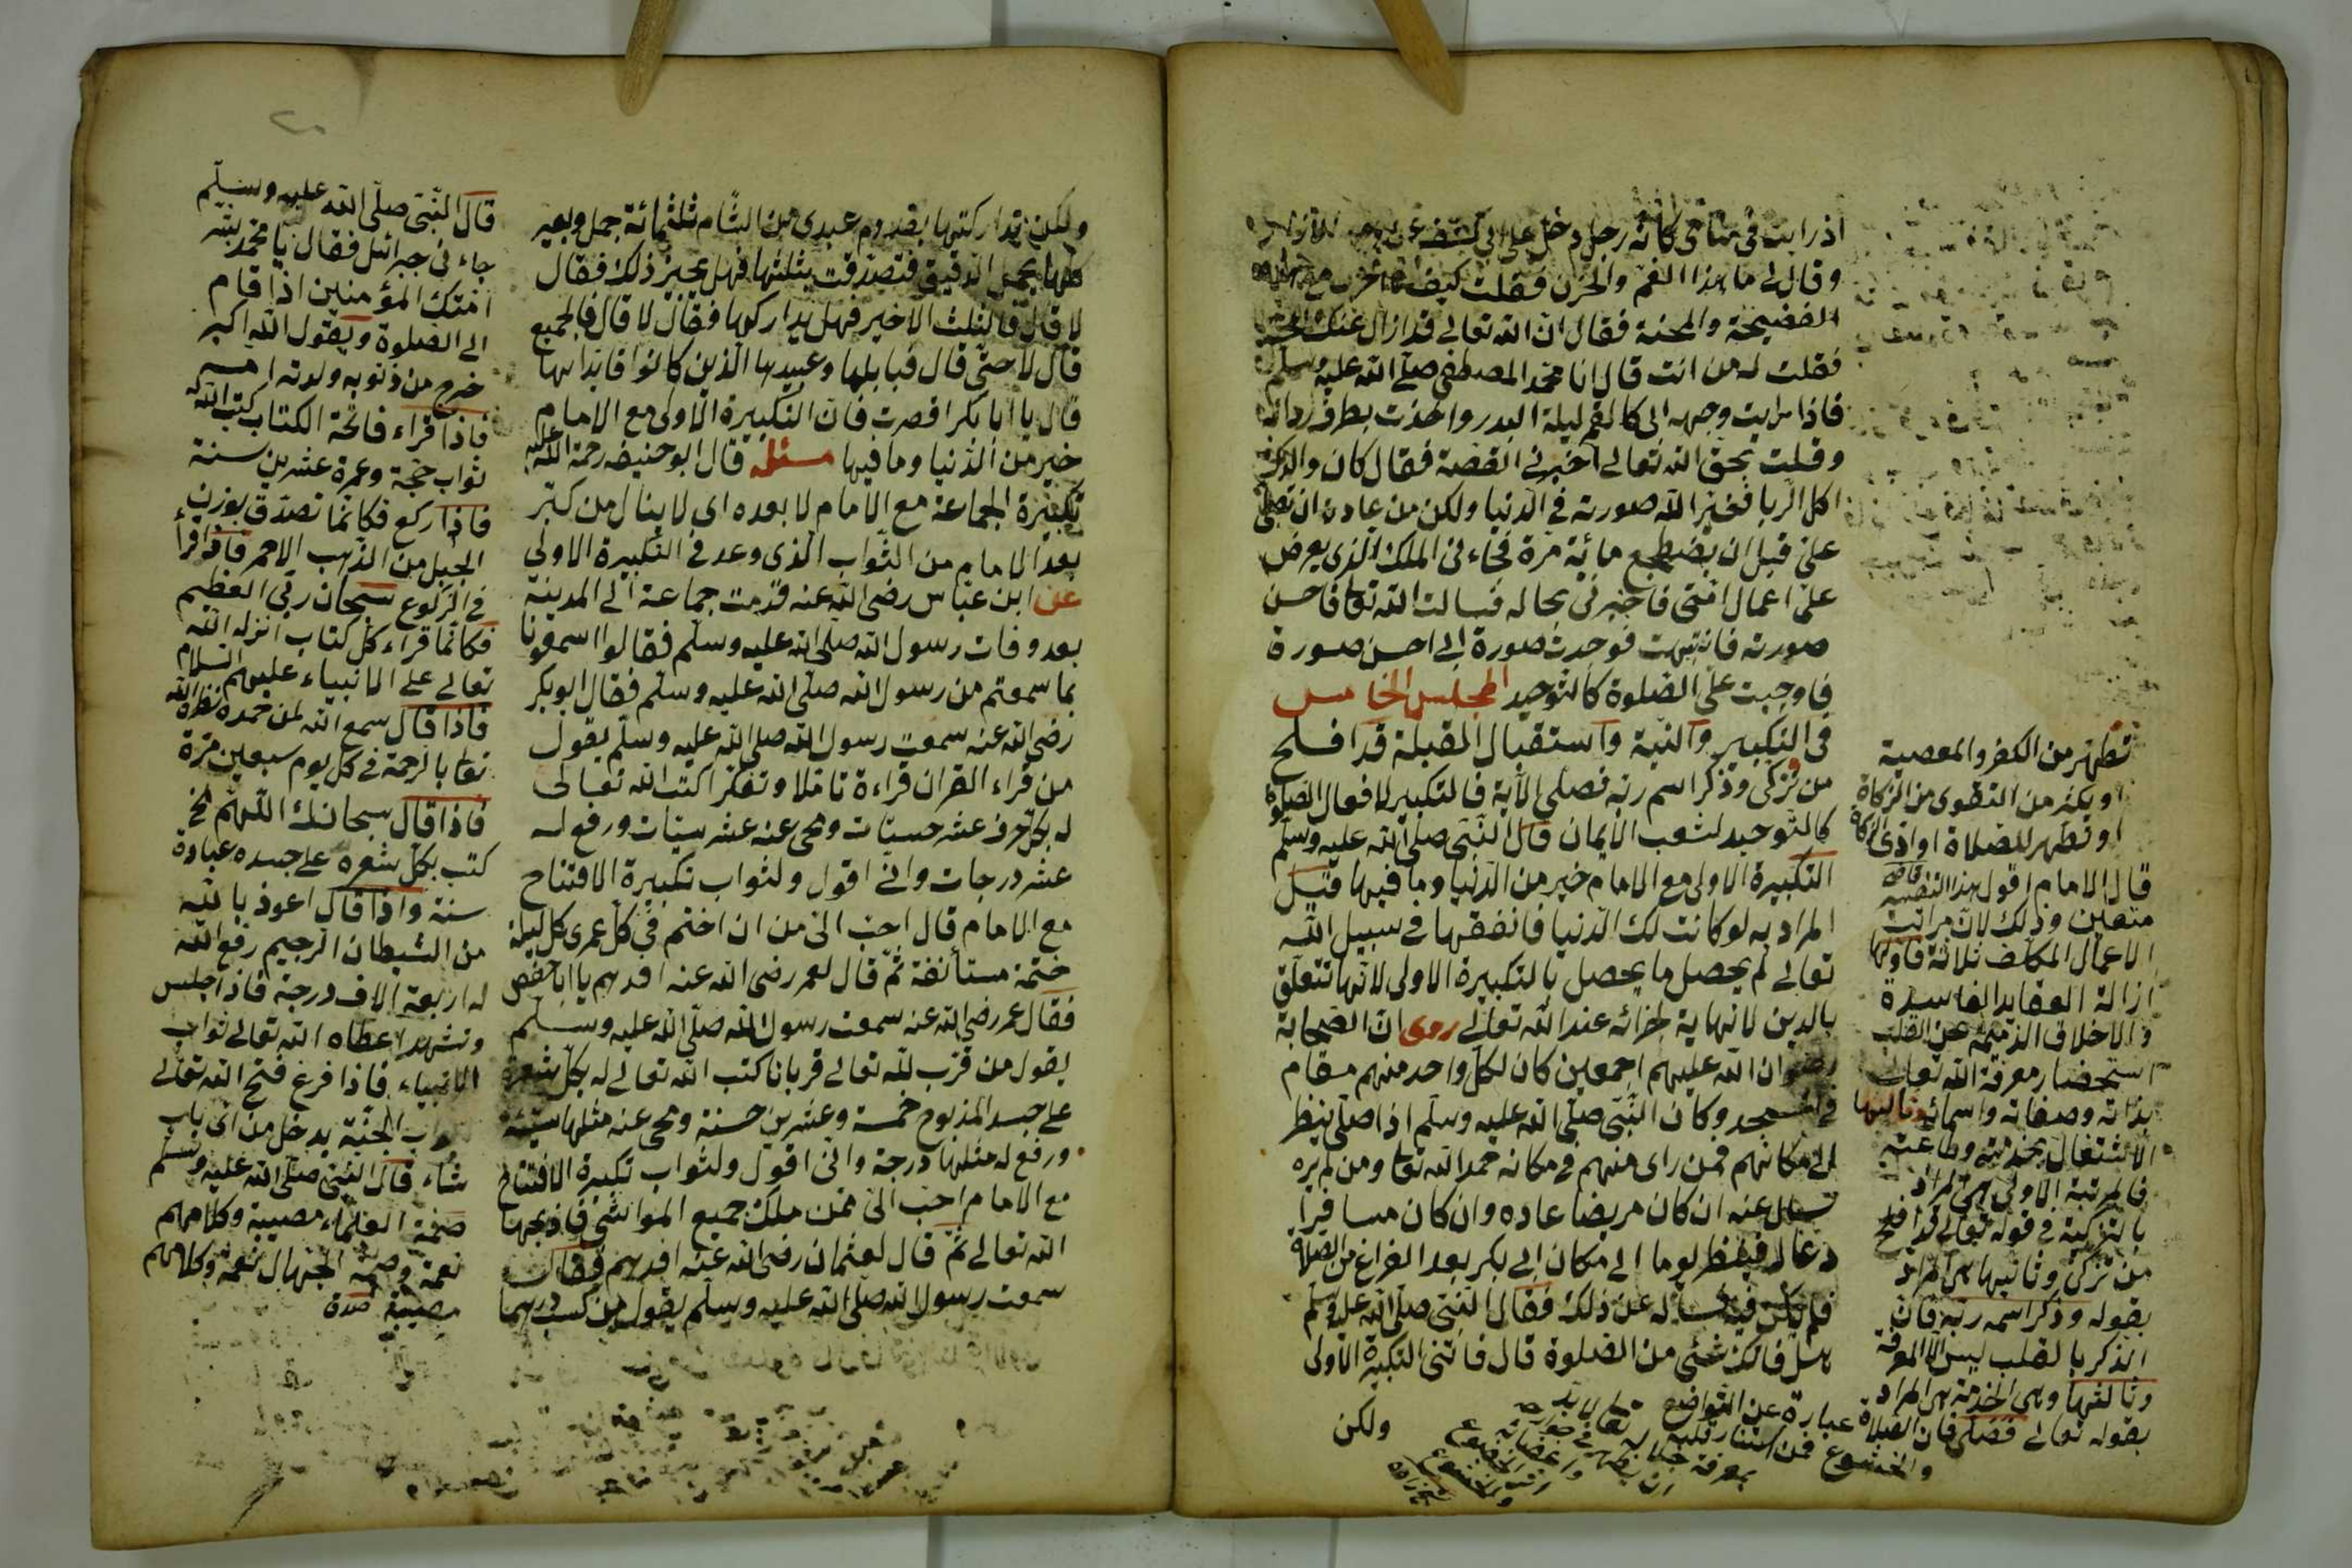 اذ رايت فى منامى كانه رجل دخل على
وقال لى ما هذا الغم والحزن فقلت كيف
الفضيحة والمحنة فقال ان الله تعالى قد ازال عنك
فقلت له من انت قال انا محمد المصطفى صلى الله عليه وسلم
فاذا رايت وجهه الى كالقمر ليلة البدر واخذت بطرف ردائه
وقلت بحق الله تعالى اخبرنى القصة فقال كان والدك
اكل الربا فغير الله صورته فى الدنيا ولكن من عادته ان يصلى
على قبل ان يضطجع مائة مرة فجاءنى الملك الذى يعرض
على اعمال امتى فاخبرنى بحاله فسالت الله تعا فاحسن
صورته فانتبهت فوجدت صورة الى احسن صورة
فاوجبت على الصلوة كالتوحيد المجلس الخامس
فى التكبير والنية واستقبال القبلة قد افلح
من تزكى وذكر اسم ربه فصلى الآية فالتكبير لافعال الصلوة
كالتوحيد لشعب الايمان قال النبى صلى الله عليه وسلم
التكبيرة الاولى مع الامام خير من الدنيا وما فيها قيل
المراد به لو كانت لك الدنيا فانفقها فى سبيل الله
تعالى لم يحصل ما يحصل بالتكبيرة الاولى لانها تتعلق
بالدين لا نهاية لجزائه عند الله تعالى روى ان الصحابة
رضوان الله عليهم اجمعين كان لكل واحد منهم مقام
فى المسجد وكان النبى صلى الله عليه وسلم اذا صلى ينظر
الى مكانهم فمن راى منهم فى مكانه حمد الله تعا ومن لم يره
تسال عنه ان كان مريضا عاده وان كان مسافرا
دعا له فينظر يوما الى مكان ابى بكر بعد الفراغ من الصلاة
فلم يكن فيه فساله عن ذلك فقال النبى صلى الله عليه وسلم
هل فاتك شئ من الصلوة قال فاتنى التكبيرة الاولى
ولكن
تطهر من الكفر والمعصية
او يكثر من التقوى من الزكاة
او تطهر للصلاة او ادى الزكاة
قال الامام اقول هذا التفسير
متعين وذلك لان مراتب
الاعمال المكلف ثلاثة فاولها
ازالة العقايد الفاسدة
والاخلاق الذميمة عن القلب
استحضار معرفة الله تعالى
بذاته وصفاته واسمائه وثالثها
الاشتغال بخدمته وطاعته
فالمرتبة الاولى هى المراد
بالتزكية فى قوله تعالى قد افلح
من تزكى وثانيها هى المراد
بقوله وذكر اسم ربه فان
الذكر بالقلب ليس الا المعرفة
وثالثها وهى الخدمة هى المراد
بقوله تعالى فصلى فان الصلاة عبارة عن التواضع
والخشوع فمن استنار قلبه
بمعرفة جلال
ولكن تداركتها بقدوم عبدى من الشام ثلثمائة جمل وبعير
كلها بحمل الدقيق فتصدقت بثلثها فهل يجبر ذلك فقال
لا قال فالثلث الاخير فهل تداركها فقال لا قال فالجميع
قال لا حتى قال فبابلها وعبيدها الذين كانوا قايدايها
قال يا ابا بكر اقصرت فان التكبيرة الاولى مع الامام
خير من الدنيا وما فيها مسئله قال ابو حنيفه رحمة الله عليه
تكبيرة الجماعة مع الامام لا بعده اى لا ينال من كبر
بعد الامام من الثواب الذى وعد فى التكبيرة الاولى
عن ابن عباس رضى الله عنه قدمت جماعة الى المدينة
بعد وفات رسول الله صلى الله عليه وسلم فقالوا اسمعونا
بما سمعتم من رسول الله صلى الله عليه وسلم فقال ابو بكر
رضى الله عنه سمعت رسول الله صلى الله عليه وسلم يقول
من قراء القران قراءة تاملا وتفكرا كتب الله تعالى
له بكل حرف عشر حسنات ومحى عنه عشر سيئات ورفع له
عشر درجات وانى اقول ولثواب تكبيرة الافتتاح
مع الامام قال احب الى من ان اختم فى كل عمرى كل ليلة
ختمة مستأنفة ثم قال لعمر رضى الله عنه افدهم يا ابا حفص
فقال عمر رضى الله عنه سمعت رسول الله صلى الله عليه وسلم
يقول من قرب لله تعالى قربانا كتب الله تعالى له بكل شعرة
على جسد المذبوح خمسة وعشرين حسنة ومحى عنه مثلها سيئة
ورفع له مثلها درجة وانى اقول ولثواب تكبيرة الافتتاح
مع الامام احب الى ممن ملك جميع المواشى فاذبحها
الله تعالى ثم قال لعثمان رضى الله عنه افدهم فقال
سمعت رسول الله صلى الله عليه وسلم يقول من كسب درهما
قال النبى صلى الله عليه وسلم
جاءنى جبرائيل فقال يا محمد بشر
امتك المؤمنين اذا قام
الى الصلوة ويقول الله اكبر
خرج من ذنوبه ولدته امه
فاذا قراء فاتحة الكتاب كتب الله له
ثواب حجة وعمرة عشرين سنة
فاذا ركع فكانما تصدق بوزن
الجبل من الذهب الاحمر فاذا قرأ
فى الركوع سبحان ربى العظيم
فكانما قراء كل كتاب انزله الله
تعالى على الانبياء عليهم السلام
فاذا قال سمع الله لمن حمده نظر الله
تعا بالرحمة فى كل يوم سبعين مرة
فاذا قال سبحانك اللهم الخ
كتب بكل شعره على جسده عبادة
سنة واذا قال اعوذ بالله
من الشيطان الرجيم رفع الله
له اربعة الاف درجة فاذا جلس
وتشهد اعطاه الله تعالى ثواب
الانبياء فاذا فرغ فتح الله تعالى
ابواب الجنة يدخل من اى باب
شاء قال النبى صلى الله عليه وسلم
صمة العلماء مصيبة وكلامهم
نعمة وصمة الجهال نعمة وكلامهم
مصيبة